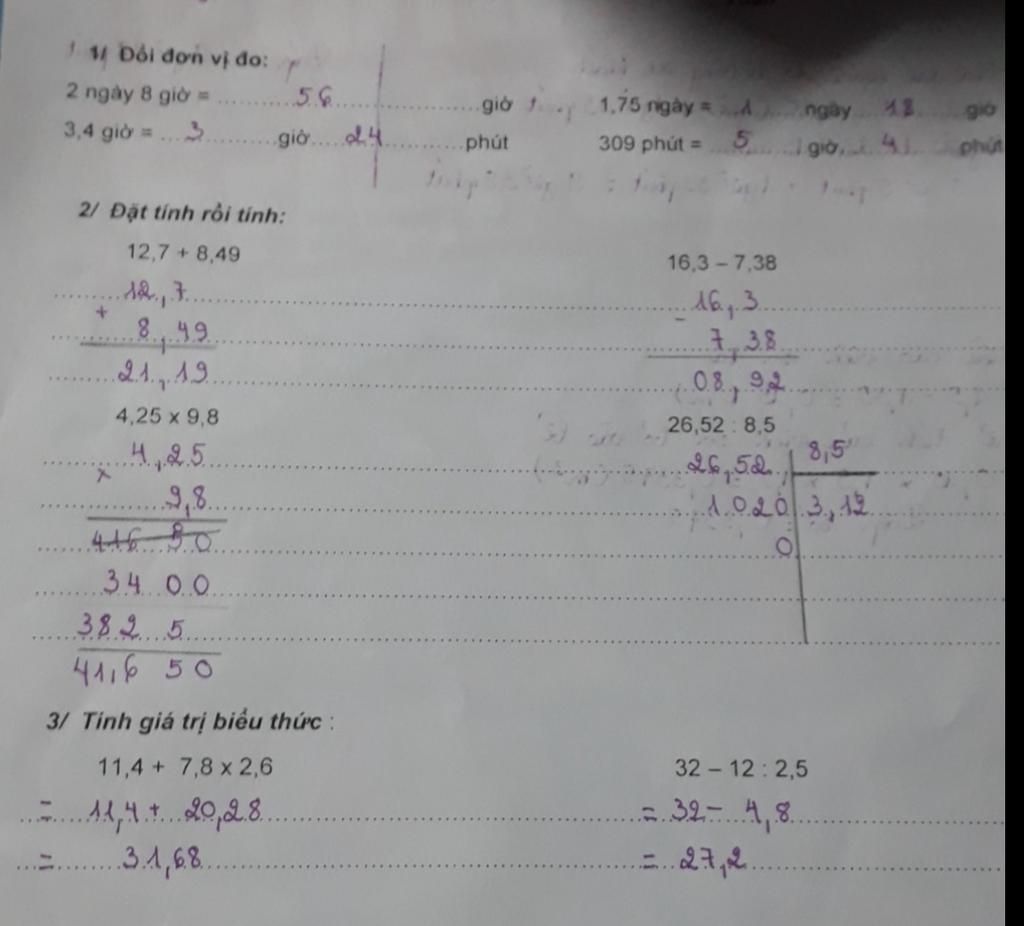 1/ Đổi đơn vị đo:
2 ngày 8 giờ = ..........56..........giờ
1,75 ngày = ..1.... ngày 18.... giờ
3,4 giờ = ...3.......giờ....24.........phút
309 phút = ...5......giờ....4.... phút
2/ Đặt tính rồi tính:
12,7 + 8,49
16,3 – 7,38
12,7
+
8,49
21,19
16,3
-
7,38
08,92
4,25 x 9,8
26,52 : 8,5
4,25
x
9,8
416 50
34 00
382 5
41,6 50
26,52 8,5
1 020 3,12
0
3/ Tính giá trị biểu thức :
11,4 + 7,8 x 2,6
32 – 12 : 2,5
= 11,4 + 20,28
= 32 - 4,8
= 31,68
= 27,2